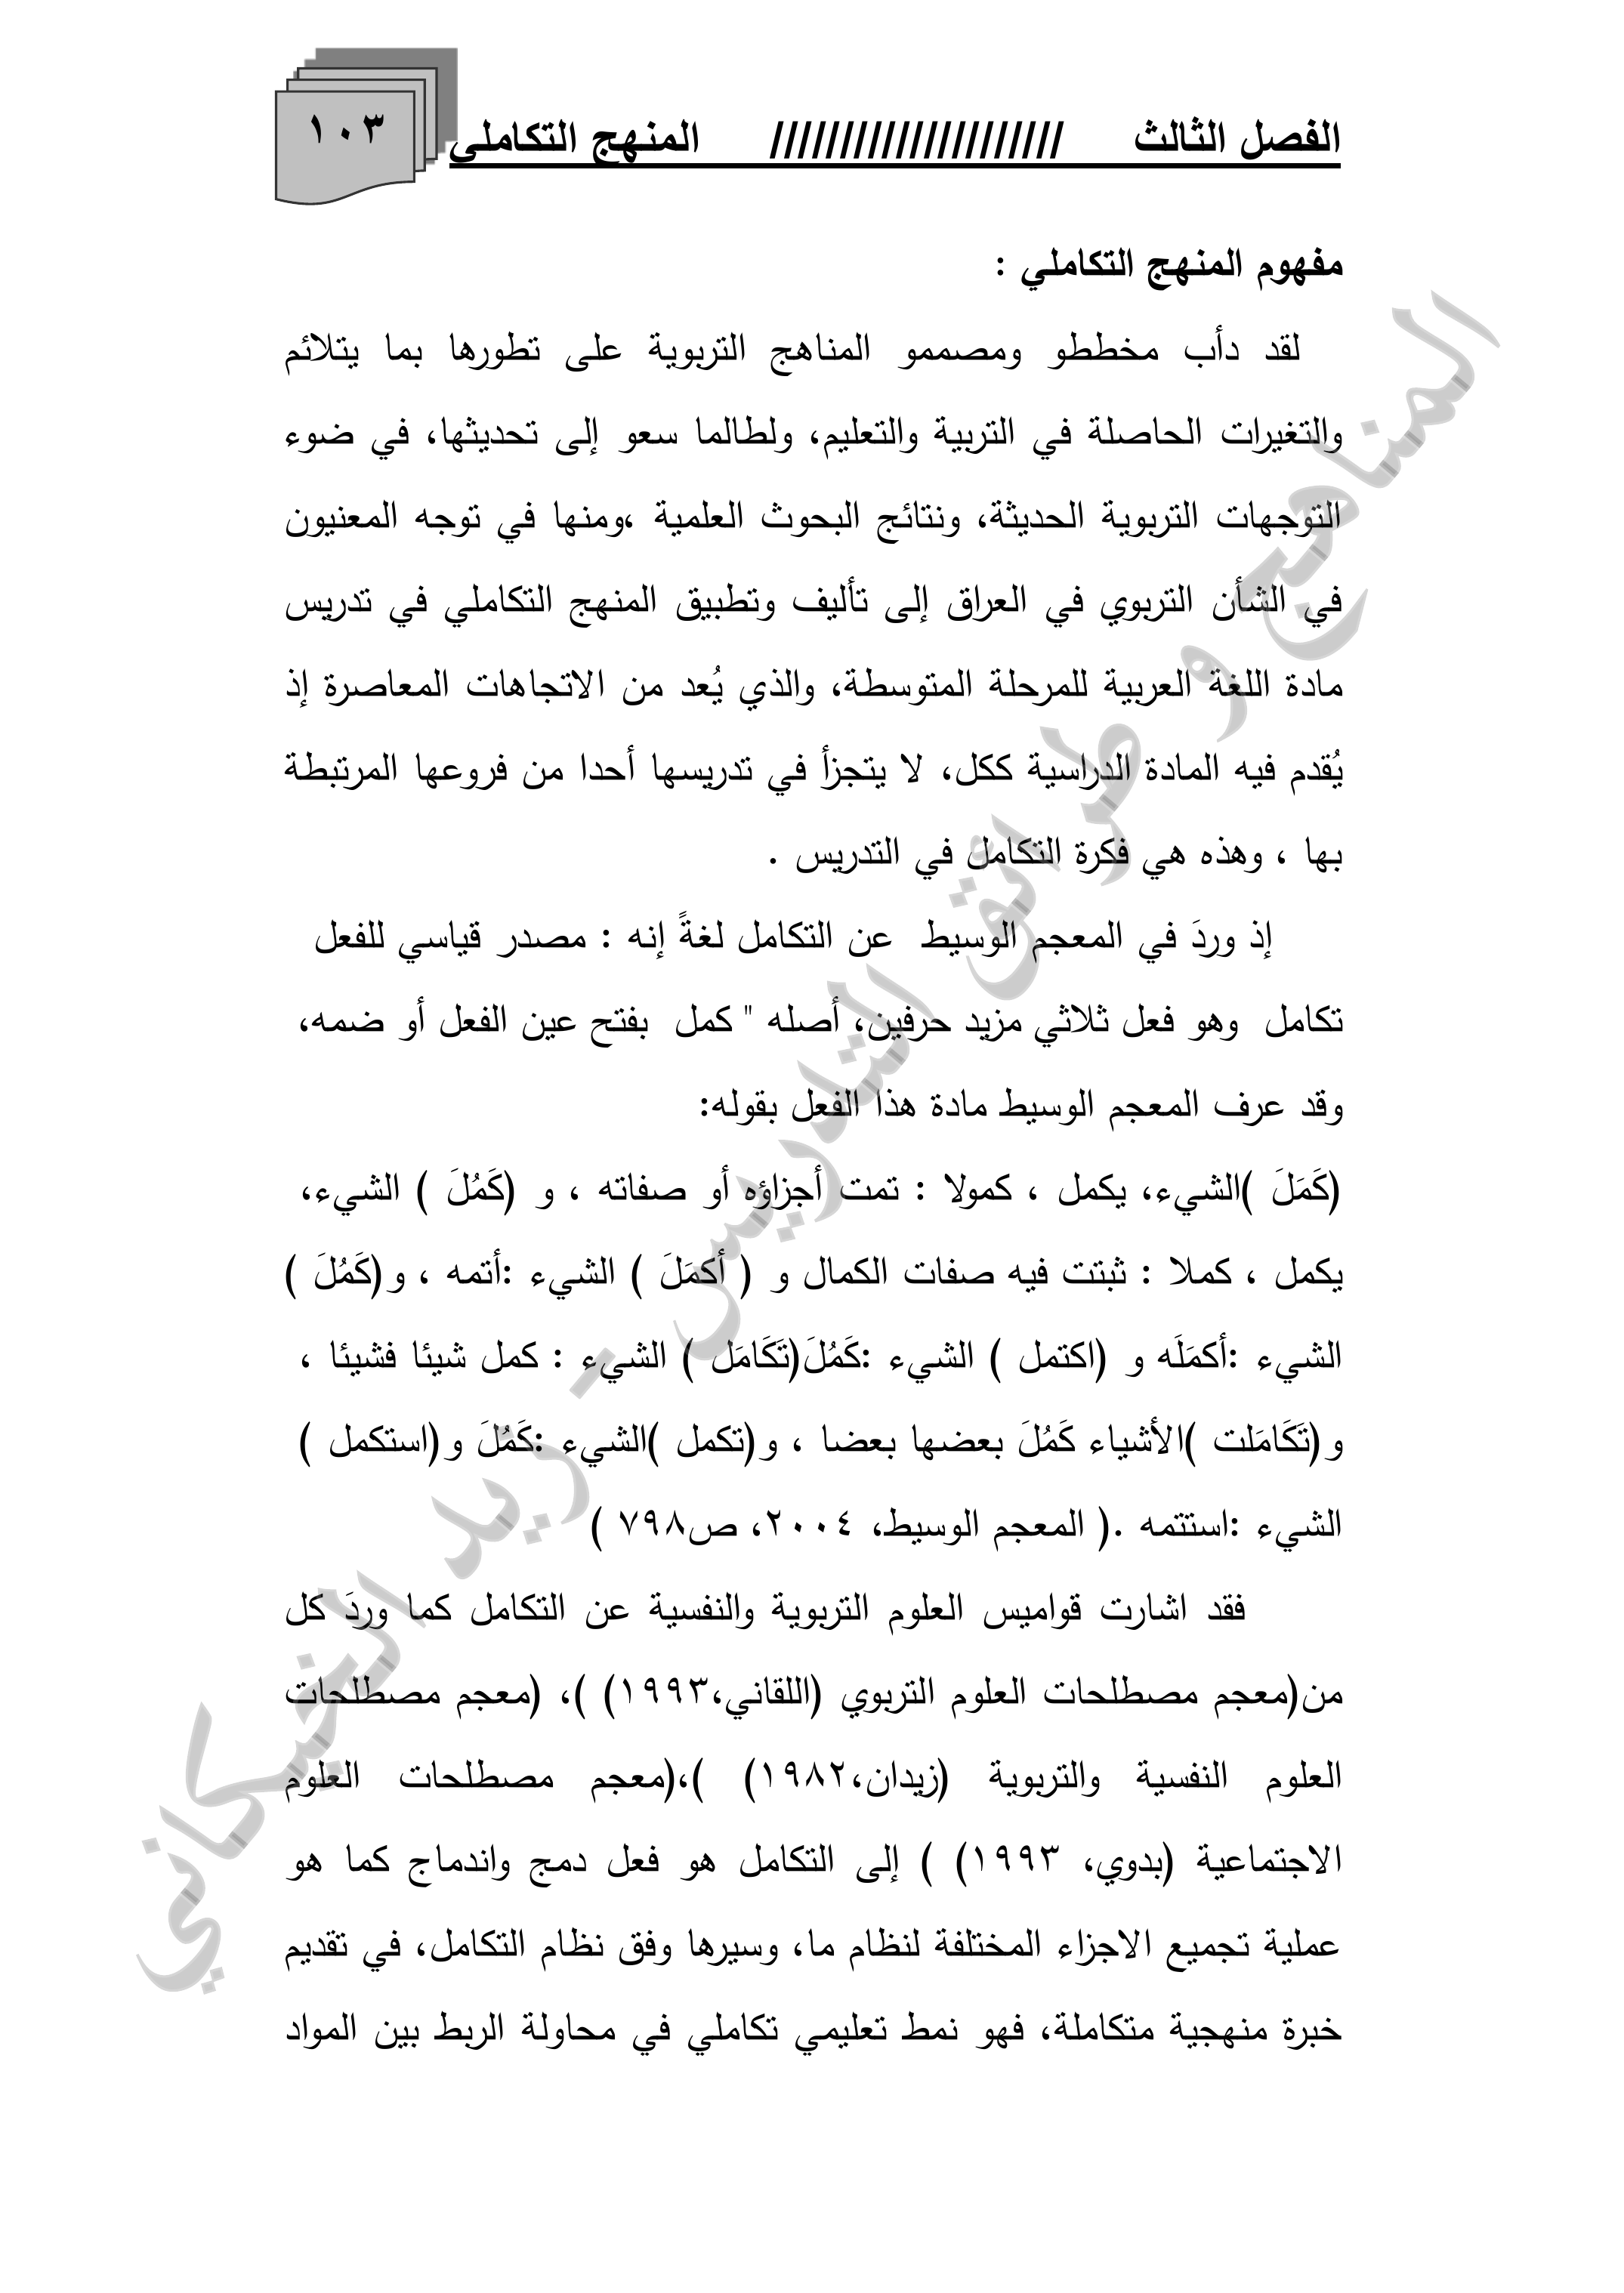 الفصل الثالث ///////////////////// المنهج التكاملي ١٠٣
مفهوم المنهج التكاملي :
لقد دأب مخططو ومصممو المناهج التربوية على تطورها بما يتلائم
والتغيرات الحاصلة في التربية والتعليم، ولطالما سعو إلى تحديثها، في ضوء
التوجهات التربوية الحديثة، ونتائج البحوث العلمية ،ومنها في توجه المعنيون
في الشأن التربوي في العراق إلى تأليف وتطبيق المنهج التكاملي في تدريس
مادة اللغة العربية للمرحلة المتوسطة، والذي يُعد من الاتجاهات المعاصرة إذ
يُقدم فيه المادة الدراسية ككل، لا يتجزأ في تدريسها أحدا من فروعها المرتبطة
بها ، وهذه هي فكرة التكامل في التدريس .
إذ وردَ في المعجم الوسيط عن التكامل لغةً إنه : مصدر قياسي للفعل
تكامل وهو فعل ثلاثي مزيد حرفين، أصله " كمل بفتح عين الفعل أو ضمه،
وقد عرف المعجم الوسيط مادة هذا الفعل بقوله:
(كَمَلَ )الشيء، يكمل ، كمولا : تمت أجزاؤه أو صفاته ، و (كَمُلَ ) الشيء،
يكمل ، كملا : ثبتت فيه صفات الكمال و ( أكمَلَ ) الشيء :أتمه ، و(كَمُلَ )
الشيء :أكمَلَه و (اكتمل ) الشيء :كَمُلَ(تَكَامَل ) الشيء : كمل شيئا فشيئا ،
و(تَكَامَلت )الأشياء كَمُلَ بعضها بعضا ، و(تكمل )الشيء :كَمُلَ و(استكمل )
الشيء :استتمه .( المعجم الوسيط، ٢٠٠٤، ص٧٩٨ )
فقد اشارت قواميس العلوم التربوية والنفسية عن التكامل كما وردَ كل
من(معجم مصطلحات العلوم التربوي (اللقاني،١٩٩٣) )، (معجم مصطلحات
العلوم النفسية والتربوية (زيدان،١٩٨٢) )،(معجم مصطلحات العلوم
الاجتماعية (بدوي، ١٩٩٣) ) إلى التكامل هو فعل دمج واندماج كما هو
عملية تجميع الاجزاء المختلفة لنظام ما، وسيرها وفق نظام التكامل، في تقديم
خبرة منهجية متكاملة، فهو نمط تعليمي تكاملي في محاولة الربط بين المواد
المناهج و طرائق التدريس - زيد الخيكاني